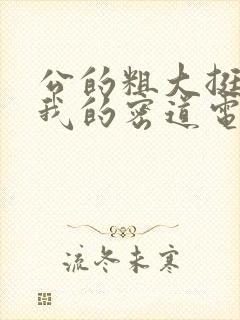 公的粗大挺
我的密道電
流冬未寒